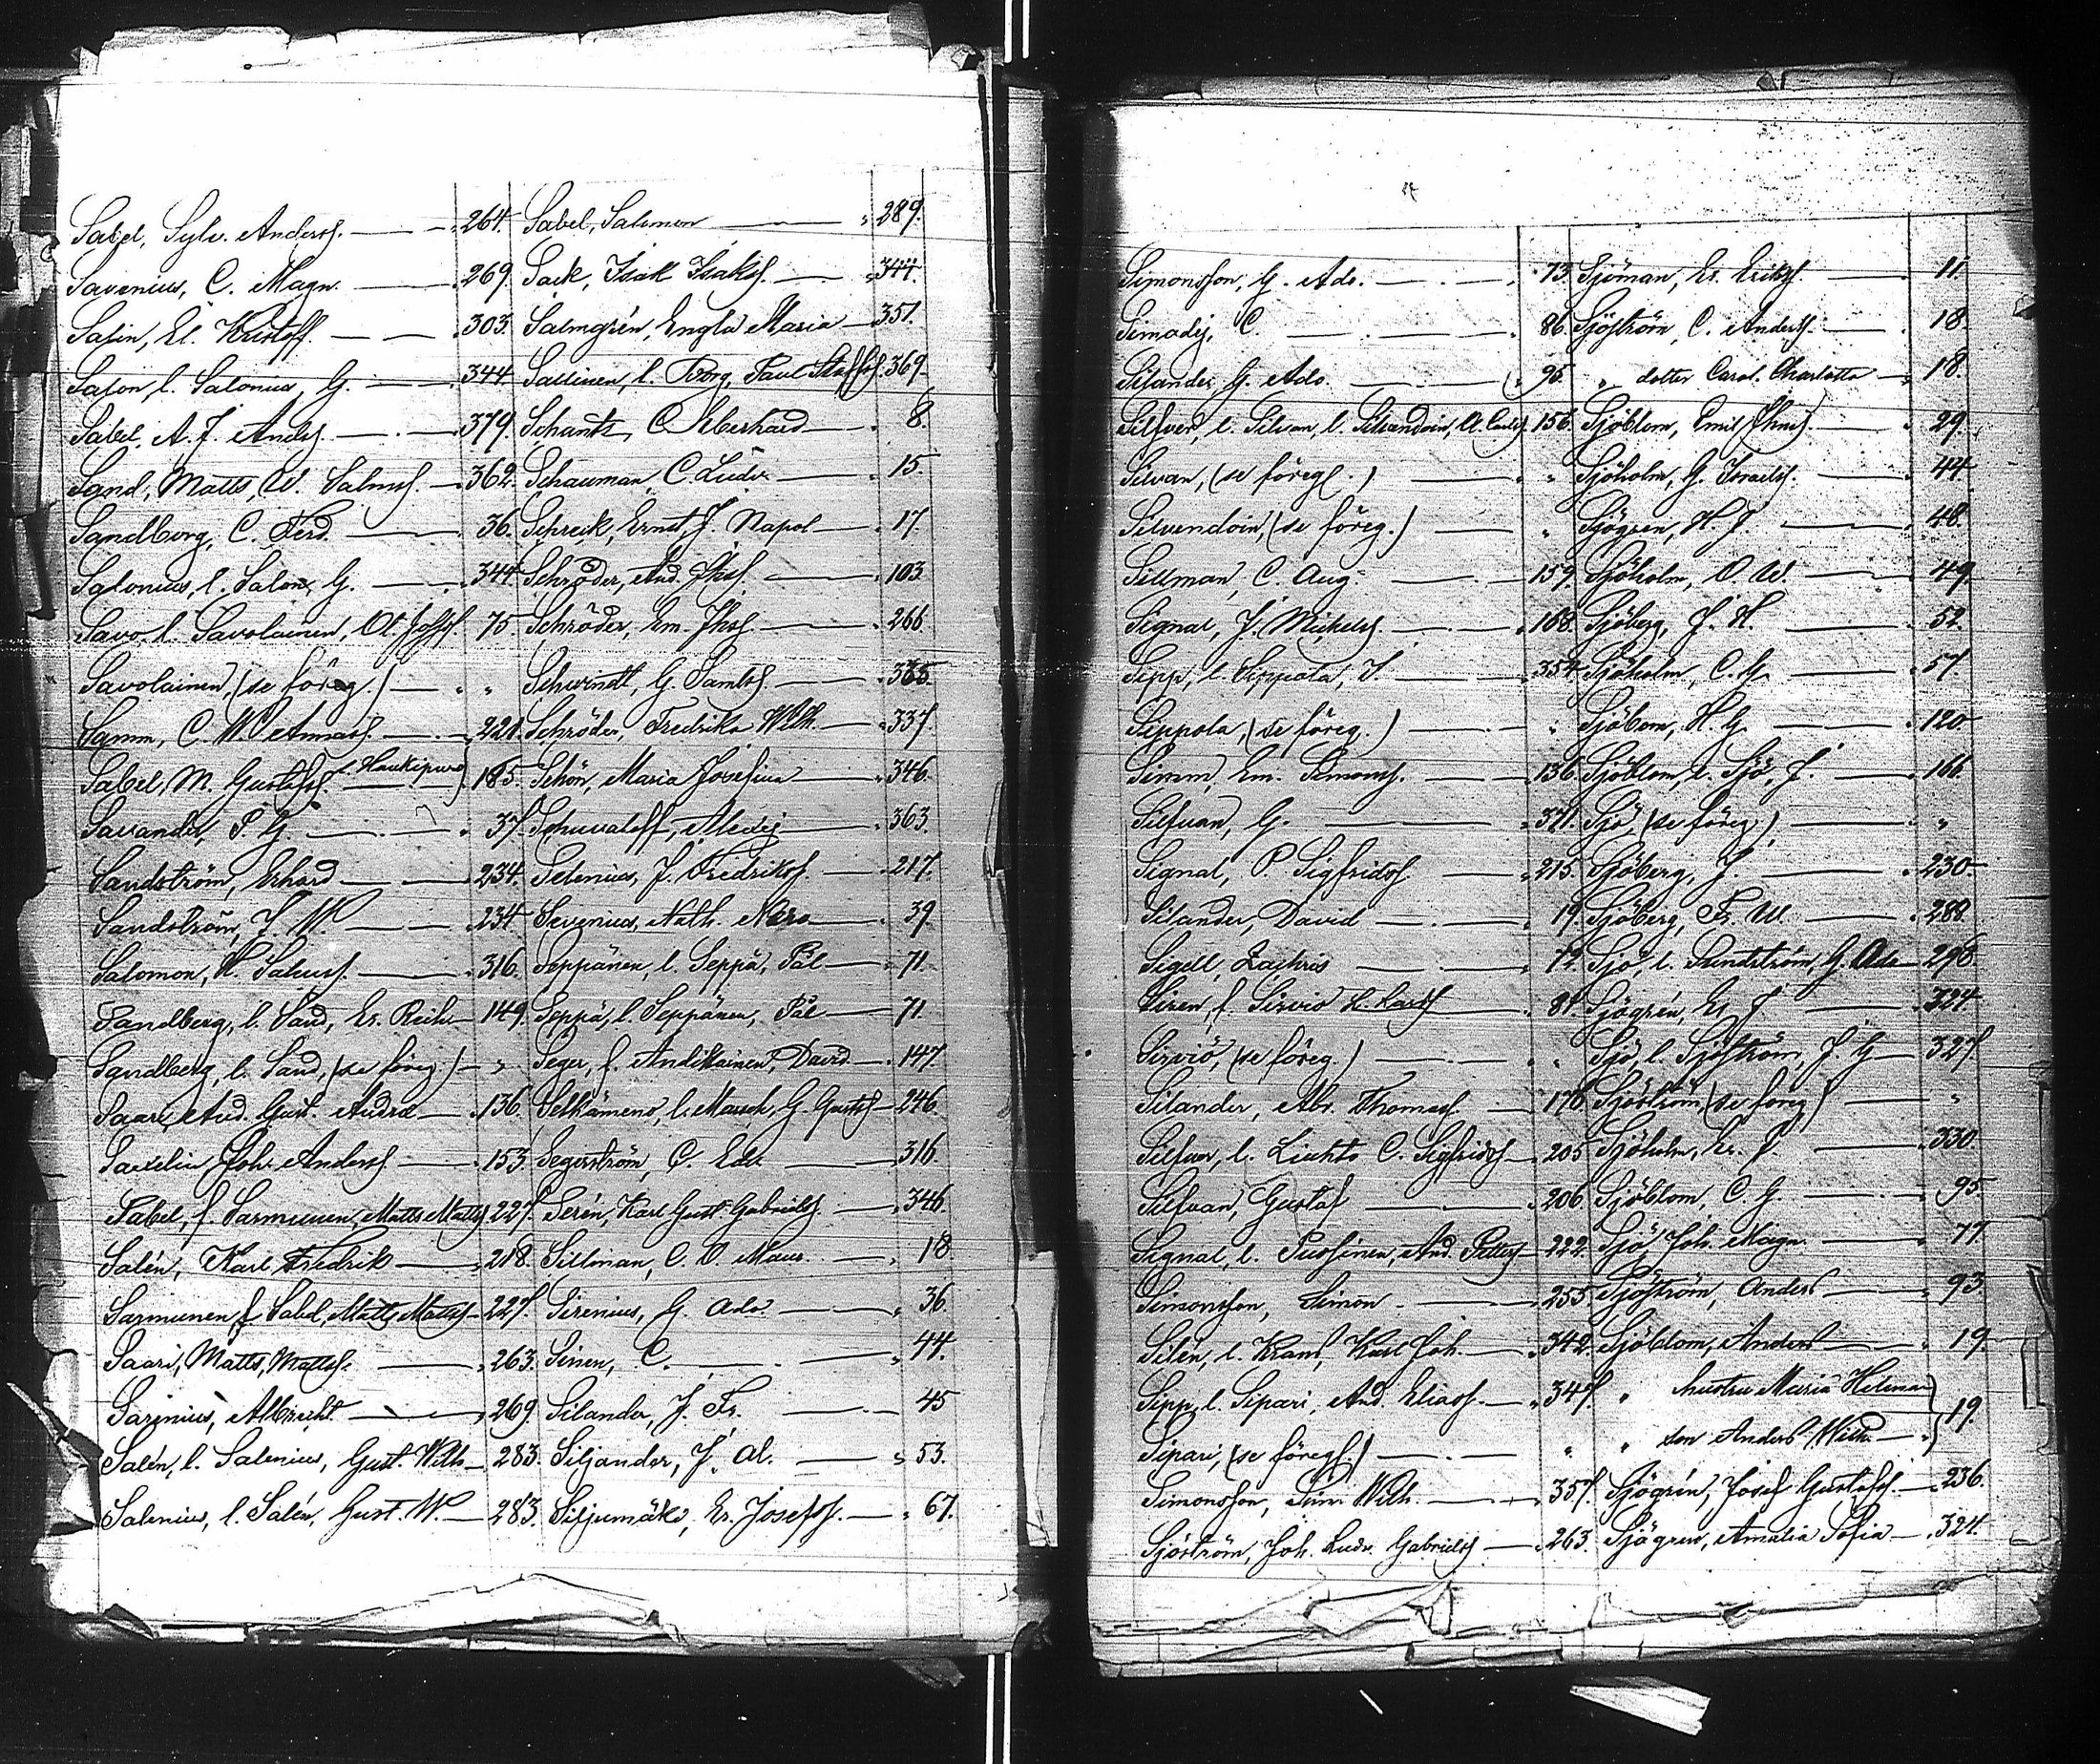 Sabel, Sylv. Anders. 264.
Savenius, C. Magn. 269.
Salin, El. Kristoff. 303.
Salon, l. Salonius, G. 344.
Sabel, A. J. Anders. 379.
Sand, Matts, W. Salms. 362.
Sandborg, C. Ferd. 36.
Salonius, l. Salon, G. 344.
Savo, l. Savolainen, Ol. 75.
Savolainen, (se föreg.) " "
Samm, C. W. 221.
Sabel, M. Gustafss. l. Haukipuro 185.
Savander, P. G. 37.
Sandström, Erhard 234.
Sandström, J. W. 234
Salomon, H. 316.
Sandberg, l. Sand, Er. Reih. 149.
Sandberg, l. Sand, (se föreg.) "
Saari, And. Gust. 136.
Saxelin, Joh. Anders. 153.
Sabel, f. Sarmunen, Matts Matts. 227.
Salén, Karl Fredrik 218.
Sarmunen f. Sabel, Matts Matts. 227.
Saari, Matts, Mattss. 263.
Sarenius, Albrecht 269.
Salén, l. Salenius, Gust. Wilh. 283.
Salenius, l. Salén, Gust. W. 283.
Sabel, Salomon 289.
Sack, Isak Isaks. 344.
Salmgrén, Engla Maria 351.
Sallinen, l. Borg, Paul Staffs. 369.
Schantz, C. Eberhard 8.
Schauman, C. Ludv. 15.
Schreik, Ernst J. Napol. 17.
Schröder, And. Jhs. 103.
Schröder, Em. Jhs. 266.
Schwindt, G. Samls. 335.
Schröder, Fredrika Wilh. 337.
Schön, Maria Josefina 346.
Schuvaloff, Alexej 363.
Selenius, J. Fredriks. 217.
Sevenius, Nath. 39.
Seppänen, l. Seppä, Pål 71.
Seppä, l. Seppänen, Pål 71.
Seger, f. Andikainen, David 147.
Selkämens, l. Masch, G. Gusts. 246.
Segerström, C. Edv. 316.
Serén, Karl Gust. Gabriels. 346.
Sillman, C. O. Maur. 18
Sirenius, G. Ado. 36.
Sinen, C. 44.
Silander, J. Fr. 45
Siljander, J. Al. 53.
Siljumäki, Er. Josefs. 67.
Simonsson, G. Ado. 73.
Simadej, C. 86.
Silander, G. Ado. 95.
Silfver, l. Silvan, l. Silvendoin, A. Carls. 156.
Silvan, (se föreg.) "
Silvendoin, (se föreg.) "
Sillman, C. Aug. 159.
Signal, J. Mickels. 168.
Sipp, l. Sippola, J. 354.
Sippola, (se föreg.) "
Simm, Em. Simons. 136.
Silfvan, G. 371.
Signal, P. Sigfrids. 215.
Silander, David 19.
Sigell, Zachris 72.
Siren, f. Sirviö H. Lars. 81.
Sirviö, (se föreg.) "
Silander, Abr. Thomas. 176.
Silfvan, l. Liukto C. Sigfrids. 205.
Silfvan, Gustaf 206.
Signal, l. Pussinen, And. Petters. 222.
Simonsson, Simon 255.
Silén, l. Krans, Karl Joh. 342.
Sipp, l. Sipari, And. Elias. 347.
Sipari, (se föreg.) "
Simonsson, Sim. Wilh. 357.
Sjöström, Joh. Ludv. Gabriels. 263.
Sjöman, Er. Eriks. 11
Sjöström, C. Anders. 18.
" dotter Carol. Charlotta 18.
Sjöblom, Emil Jhns. 29.
Sjöholm, G. Israels. 44
Sjögren, H. J. 48.
Sjöholm, O. W. 49.
Sjöberg, J. H. 52.
Sjöholm, C. G. 57.
Sjöbom, H. G. 120
Sjöblom, l. Sjö, J. 166.
Sjö, (se föreg.) "
Sjöberg, J. 230.
Sjöberg, Fr. W. 288.
Sjö, l. Sundström, G. Ado. 298.
Sjögrén, Er. J. 324.
Sjö, l. Sjöström, J. G. 327
Sjöström, (se föreg.) "
Sjöholm, Er. J. 330.
Sjöblom, C. G. 95
Sjö, Joh. Magn. 77
Sjöström, Anders 93.
Sjöblom, Anders 19.
" hustru Maria Helena
" son Anders Wilh. 19.
Sjögrén, Josef Gustafs. 236.
Sjögren, Amalia Sofia 324.